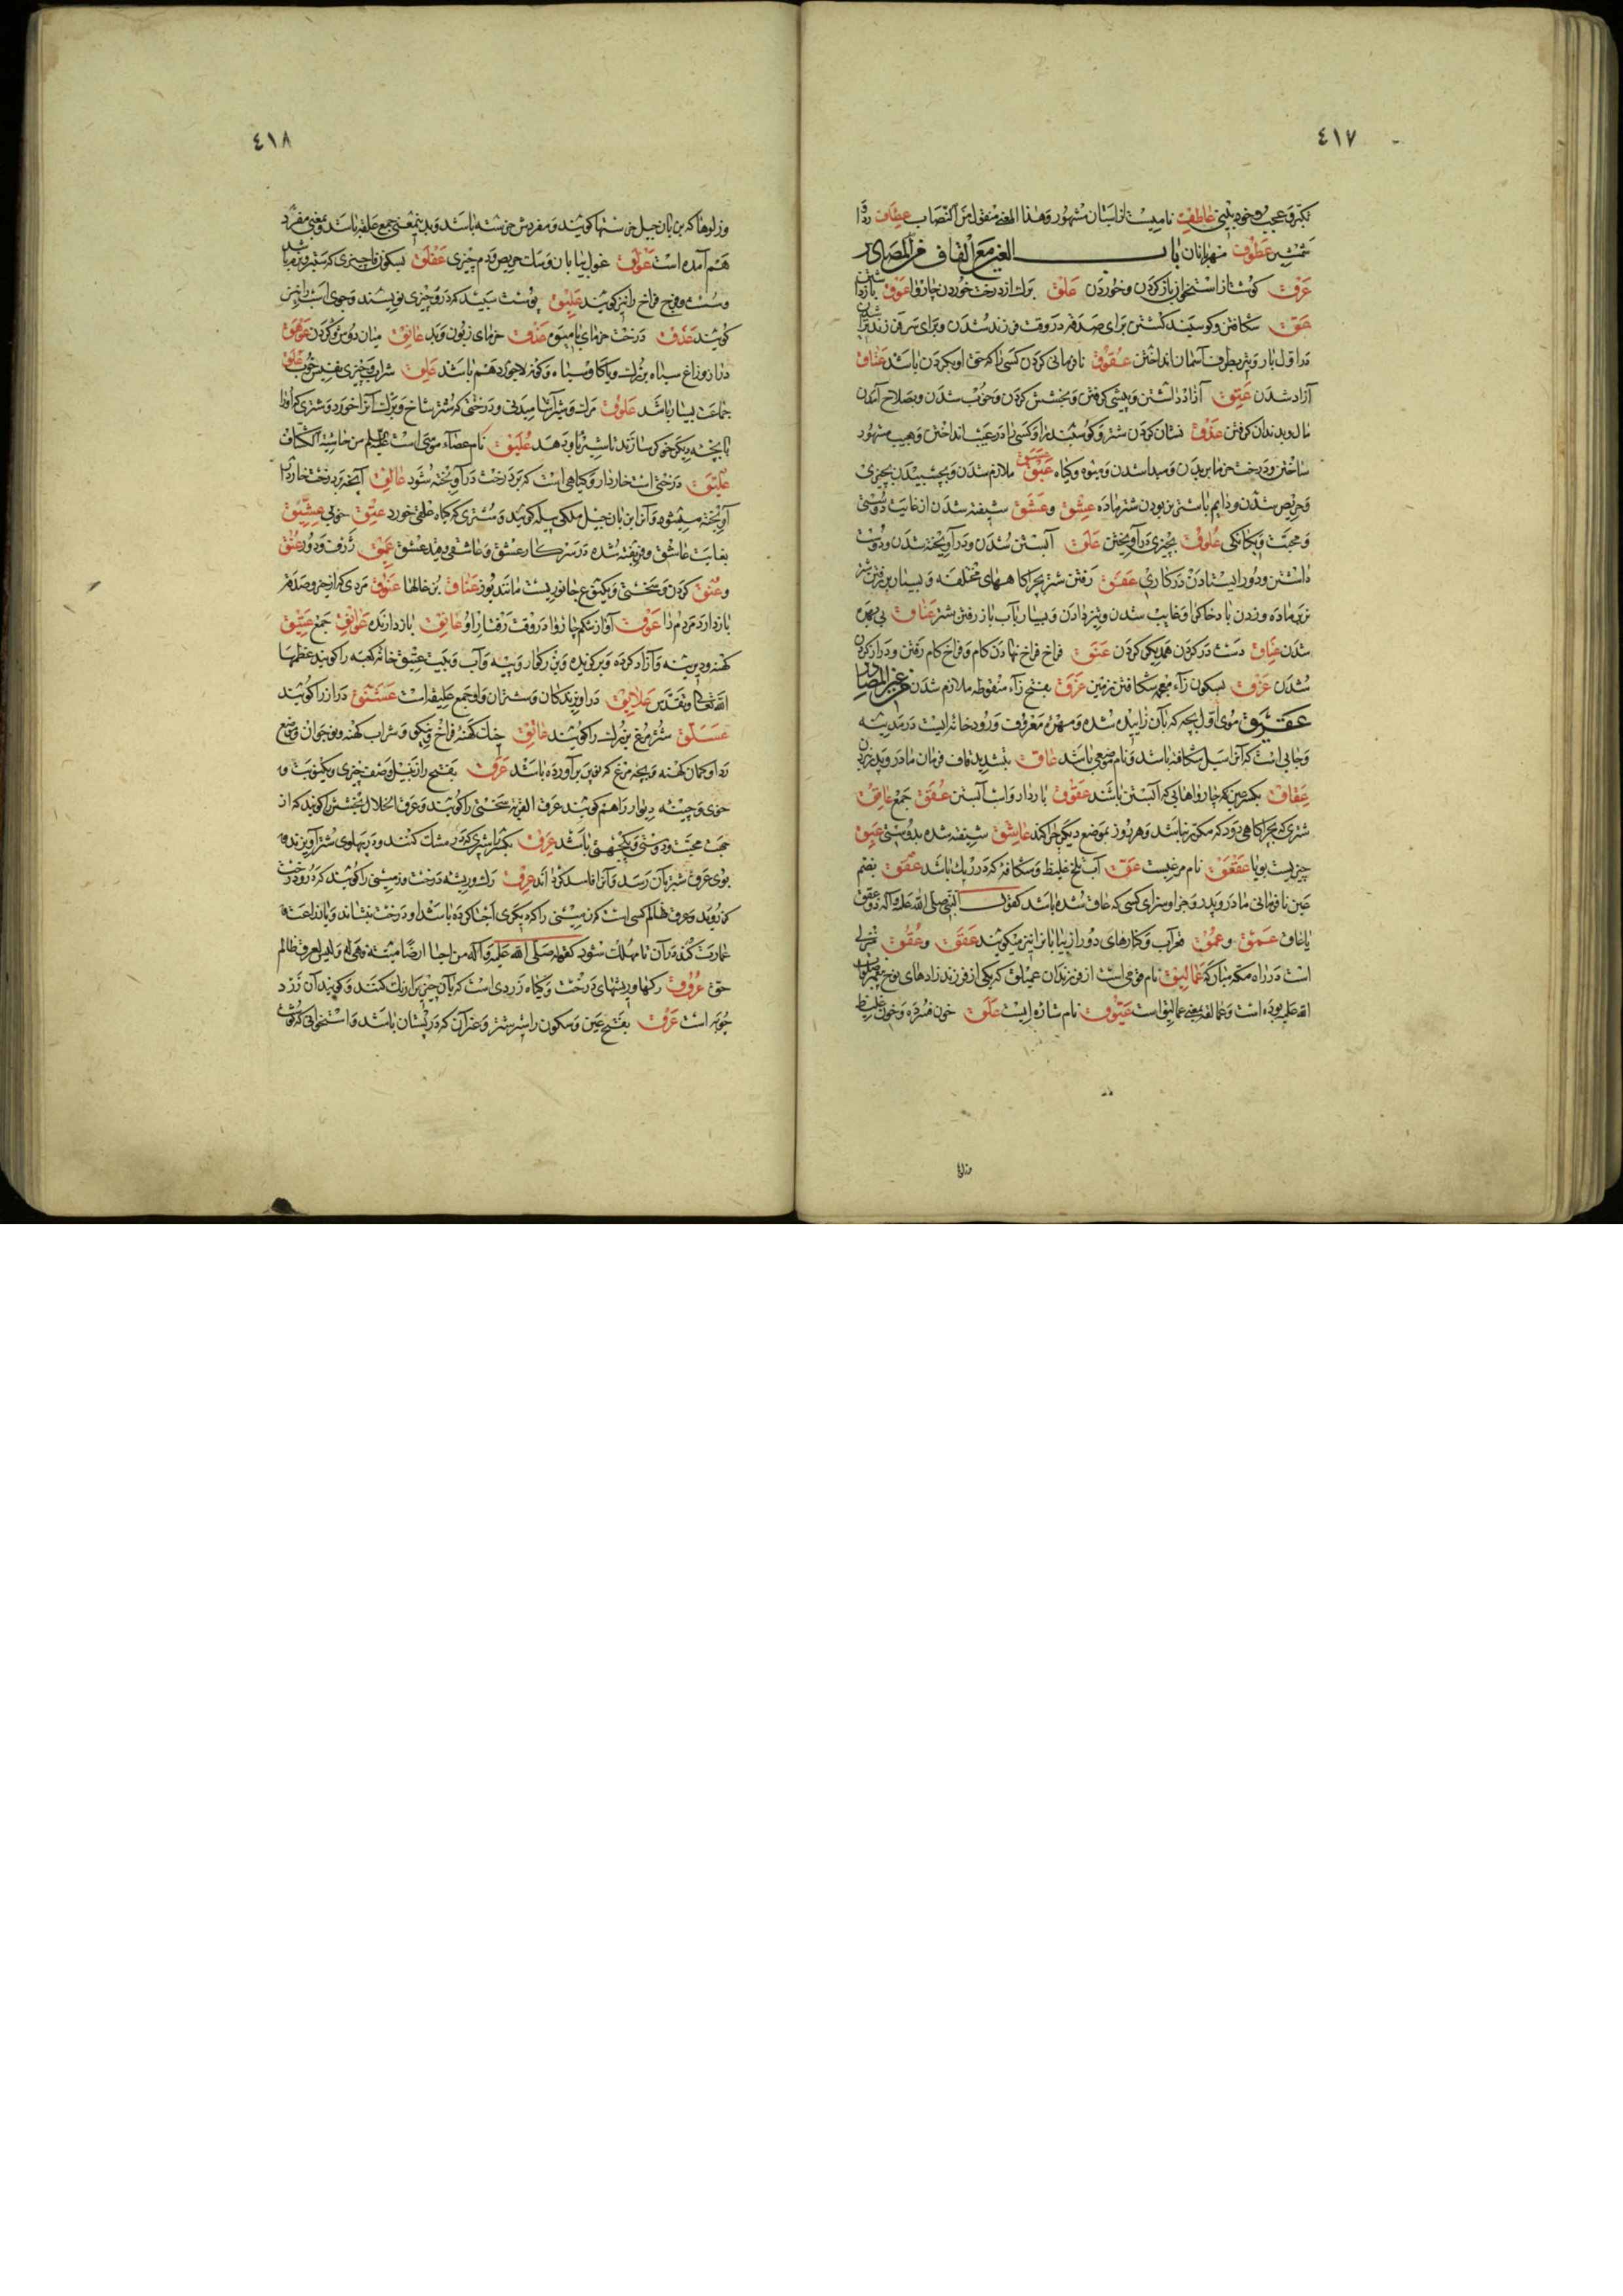 ٤١٧
تکبّر و عجب و خود بینی عاطفت نام یست از اسبان مشهور و هذا المعنی منقول من النصاب عطاف ردا
شمشیر عطوف مهربانان باب العین مع القاف من المصادر
عرق گوشت از استخوان باز کردن و خوردن علق برک از درخت خوردن چاروا عوق باز داشتن
عق شکافتن و کوسپند کشتن برای صدقه در وقت فرزند شدن و برای سر فرزند
در اول بار و تیر بطرف آسمان انداختن عقوق نافرمانی کردن کسی را که حق او بر کردن باشد عتاق
آزاد شدن عتق آزاد داشتن و پیشی کرفتن و بخشش کردن و خوب شدن و بصلاح آمدن
مال و بدندان کرفتن عذق نشان کردن شتر و کوسپند را و کسی را در عیب انداختن و بعیب مشهور
ساختن و درخت خرما بریدن و پیدا شدن و میوه و کیاه عبق ملازم شدن و بچسپیدن بچیزی
و حریص شدن و دایم با شتر نر بودن شتر ماده عشق و عشق شیفته شدن از غایت دوستی
و محبت و یکانکی علوق بچیزی درآویختن علق آبستن شدن و درآویخته شدن و دوست
داشتن و دور ایستادن در کاری عفق رفتن شتر بچراکاههای مختلفه و بسیار
نر بماده و زدن باد خاک را و غایب شدن و تیز دادن و بسیار بآب باز رفتن شتر عناق بی بهره
شدن عناق دست در کردن همدیکر کردن عنق فراخ فراخ نهادن کام و فراخ کام رفتن و دراز کردن
شدن عزق بسکون زاء معجمه شکافتن زمین عزق بفتح زاء منقوطه ملازم شدن من غیر المصادر
عقیق موی اول بچه که بآن زاییده شده و مهره معروف و رودخانه ایست در مدینه
و جایی است که آنرا سیل شکافته باشد و نام موضعی باشد عاق بتشدید قاف فرمان مادر و پدر نبردن
عقاق بکسر عین که چارواهایی که آبستن باشند عقوق باردار و اسب آبستن عقق جمع عاشق
شتری که بچراکاهی رود که مکرر نباشد و هر روز بموضع دیکر چرا کند عاشق شیفته شده بدوستی عبق
چیزیست بویا عقعق نام مرغیست عقق آب تلخ غلیظ و شکافه که در ریک باشد عقق بضم
عین نافرمانی مادر و پدر و جزا و سزای کسی که عاق شده باشد کقول النبی صلی الله علیه و آله ذق عقق
یا عاق عمق و عمق قعر آب و کنارهای دور از بیابان را نیز میکویند عقق و عقق منزلی
است در راه مکه مبارکه عمالیق نام قومی است از فرزندان عملیق که یکی از فرزند زادهای نوح پیغمبر صلوات
الله علیه بوده است و عمالقه بمعنی عمالیق است عیوق نام ستاره ایست علق خون فسرده و خون غلیظ
٤١٨
و زلوها که بزبان جیل خرسنها کویند و مفردش خرشته باشد و بدین معنی جمع علقه باشد و بمعنی مفرد
هم آمده است عولق غول بیابان و سک حریص و دم چیزی عفلق بسکون فا چیزی که سطبر و نرم باشد
و سست و فرج فراخ را نیز کویند علیق پوست سپید که در و چیزی نویسند و جوی است را نیز
کویند عذق درخت خرمای با میوه عذق خرمای زبون و بد عاتق میان دوش و کردن عوهق
دراز و زاغ سیاه بزرک و یا کاو سیاه و کونه لاجورد هم باشد علق شراب و چیزی نفیس خوب علق
جماعت بسیار باشد علوق مرک و شتر آنها میدنی و درختی که شتر شاخ و برک آنرا خورد و شتری که او را
با بچه دیکر خوکر سازند تا شیر باو دهد علیق نام عصاء موسی است علیه السلام من حاشیة الکشاف
علیق درختی است خاردار و کیاهی است که بر درخت درآویخته شود عالق آنچه بر درخت خاردار
آویخته میشود و آنرا بزبان جیل ملکی پیله کویند و شتری که کیاه علقی خورد عتق خوبی عشیق
بغایت عاشق و فریفته شده در سر کار عشق و عاشقی و مِقد عشق عمق ژرف و دور عنق
و عنق کردن و سختی و یک نوع جانوریست مانند یوز عناق بزغالها عوق مردی که از خیر و صدقه
باز دارد مردم را عوق آواز شکم چاروا در وقت رفتار او عایق باز دارنده عوایق جمع عتیق
کهنه و دیرینه و آزاد کرده و برکزیده و بزرکوار و پیه و آب و بیت عتیق خانه کعبه را کویند عظمها
الله تعالی و تقدس علایق درآویزندکان و شتران و او جمع علیقه است عشنق دراز را کویند
عسلق شترمرغ بزرک را کویند عاتق خیک کهنه فراخ و نیکو و شراب کهنه و نوجوان و وضع
ردا و کمان کهنه و بچه مرغ که نو پر برآورده باشد عرق بفتح را زنبیل و صف چیزی و یک نوبت و
خوی و چینه دیوار را هم کویند عرق القربه سختی را کویند و عرق الخلال بخشش را کویند که از
جهت محبت و دوستی و یکجهتی باشد عرق بکسر را شیری که در مشک کنند و در پهلوی شتر آویزند و
بوی عرق شتر بآن رسد و آنرا فاسد کرداند عرق رک و ریشه درخت و زمینی را کویند که درو درخت
کز روید و عرق ظالم کسی است که زمینی را که دیکری احیا کرده باشد او درخت بنشاند و یا زراعت و
عمارت کند در آن تا مملکت شود کقوله صلی الله علیه و آله من احیا ارضا میتة فهی له و لیس لعرق ظالم
حق عروق رکها و ریشهای درخت و کیاه زردی است که بآن چیزها را رنک کنند و کویند آن زرد
چوبه است عرق بفتح عین و سکون را شیر شتر و غیر آن که در پستان باشد و استخوانی که کوشت